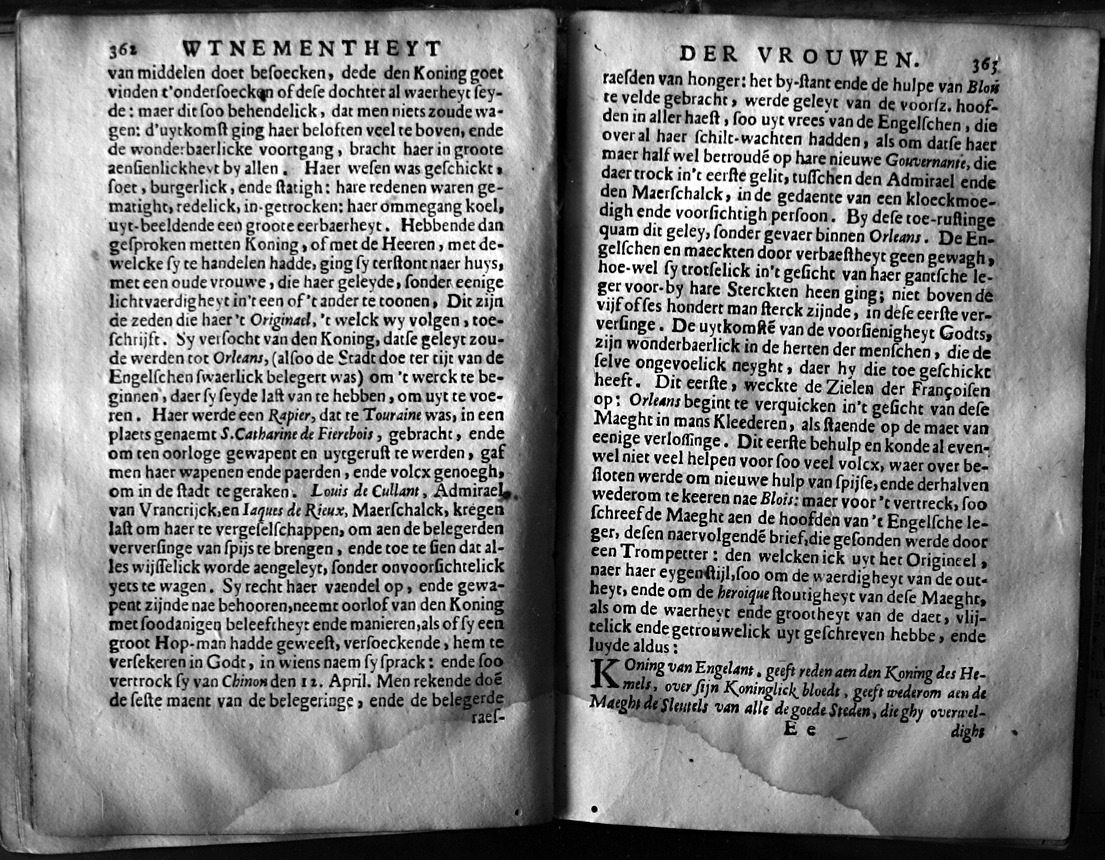 362 WTNEMENTHEYT
van middelen doet beſoecken, dede den Koning goet
vinden t'onderſoecken of deſe dochter al waerheyt ſey-
de: maer dit ſoo behendelick, dat men niets zoude wa-
gen: d'uytkomſt ging haer beloften veel te boven, ende
de wonderbaerlicke voortgang, bracht haer in groote
aenſienlickheyt by allen. Haer weſen was geſchickt,
ſoet, burgerlick, ende ſtatigh: hare redenen waren ge-
matight, redelick, in-getrocken: haer ommegang koel,
uyt-beeldende een groote eerbaerheyt. Hebbende dan
geſproken metten Koning, of met de Heeren, met de-
welcke ſy te handelen hadde, ging ſy terſtont naer huys,
met een oude vrouwe, die haer geleyde, ſonder eenige
lichtvaerdigheyt in't een of 't ander te toonen, Dit zijn
de zeden die haer 't Originael, 't welck wy volgen, toe-
ſchrijft. Sy verſocht van den Koning, datſe geleyt zou-
de werden tot Orleans, (alſoo de Stadt doe ter tijt van de
Engelſchen ſwaerlick belegert was) om 't werck te be-
ginnen, daer ſy ſeyde laſt van te hebben, om uyt te voe-
ren. Haer werde een Rapier, dat te Touraine was, in een
plaets genaemt S. Catharine de Fierebois, gebracht, ende
om ten oorloge gewapent en uytgeruſt te werden, gaf
men haer wapenen ende paerden, ende volcx genoegh,
om in de ſtadt te geraken. Louis de Cullant, Admirael
van Vrancrijck, en Iaques de Rieux, Maerſchalck, kregen
laſt om haer te vergeſelſchappen, om aen de belegerden
ververſinge van ſpijs te brengen, ende toe te ſien dat al-
les wijſſelick worde aengeleyt, ſonder onvoorſichtelick
yets te wagen. Sy recht haer vaendel op, ende gewa-
pent zijnde nae behooren, neemt oorlof van den Koning
met ſoodanigen beleeftheyt ende manieren, als of ſy een
groot Hop-man hadde geweeſt, verſoeckende, hem te
verſekeren in Godt, in wiens naem ſy ſprack: ende ſoo
vertrock ſy van Chinon den 12. April. Men rekende doē
de ſeſte maent van de belegeringe, ende de belegerde
raeſ-
DER VROUWEN. 363
raeſden van honger: het by-ſtant ende de hulpe van Blois
te velde gebracht, werde geleyt van de voorſz. hoof-
den in aller haeſt, ſoo uyt vrees van de Engelſchen, die
over al haer ſchilt-wachten hadden, als om datſe haer
maer half wel betroudē op hare nieuwe Gouvernante, die
daer trock in't eerſte gelit, tuſſchen den Admirael ende
den Maerſchalck, in de gedaente van een kloeckmoe-
digh ende voorſichtigh perſoon. By deſe toe-ruſtinge
quam dit geley, ſonder gevaer binnen Orleans. De En-
gelſchen en maeckten door verbaeſtheyt geen gewagh,
hoe-wel ſy trotſelick in't geſicht van haer gantſche le-
ger voor-by hare Sterckten heen ging; niet boven de
vijf of ſes hondert man ſterck zijnde, in deſe eerſte ver-
verſinge. De uytkomſtē van de voorſienigheyt Godts,
zijn wonderbaerlick in de herten der menſchen, die de
ſelve ongevoelick neyght, daer hy die toe geſchickt
heeft. Dit eerſte, weckte de Zielen der Françoiſen
op: Orleans begint te verquicken in't geſicht van deſe
Maeght in mans Kleederen, als ſtaende op de maet van
eenige verloſſinge. Dit eerſte behulp en konde al even-
wel niet veel helpen voor ſoo veel volcx, waer over be-
ſloten werde om nieuwe hulp van ſpijſe, ende derhalven
wederom te keeren nae Blois: maer voor 't vertreck, ſoo
ſchreef de Maeght aen de hoofden van 't Engelſche le-
ger, deſen naervolgendē brief, die geſonden werde door
een Trompetter: den welcken ick uyt het Origineel,
naer haer eygen ſtijl, ſoo om de waerdigheyt van de out-
heyt, ende om de heroique ſtoutigheyt van deſe Maeght,
als om de waerheyt ende grootheyt van de daet, vlij-
telick ende getrouwelick uyt geſchreven hebbe, ende
luyde aldus:
KOning van Engelant, geeft reden aen den Koning des He-
mels, over ſijn Koninglick bloedt, geeft wederom aen de
Maeght de Sleutels van alle de goede Steden, die ghy overwel-
E e dight